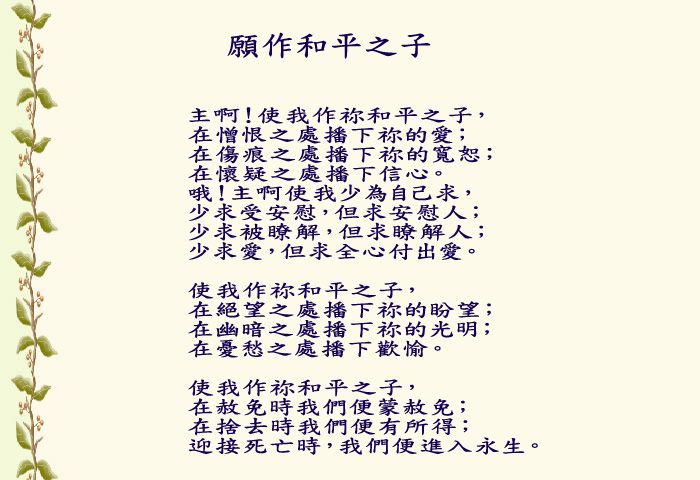 願作和平之子
主啊!使我作祢和平之子,
在憎恨之處播下祢的愛;
在傷痕之處播下祢的寬恕;
在懷疑之處播下信心。
哦!主啊使我少為自己求,
少求受安慰,但求安慰人;
少求被瞭解,但求瞭解人;
少求愛,但求全心付出愛。
使我作祢和平之子,
在絕望之處播下祢的盼望;
在幽暗之處播下祢的光明;
在憂愁之處播下歡愉。
使我作祢和平之子,
在赦免時我們便蒙赦免;
在捨去時我們便有所得;
迎接死亡時,我們便進入永生。